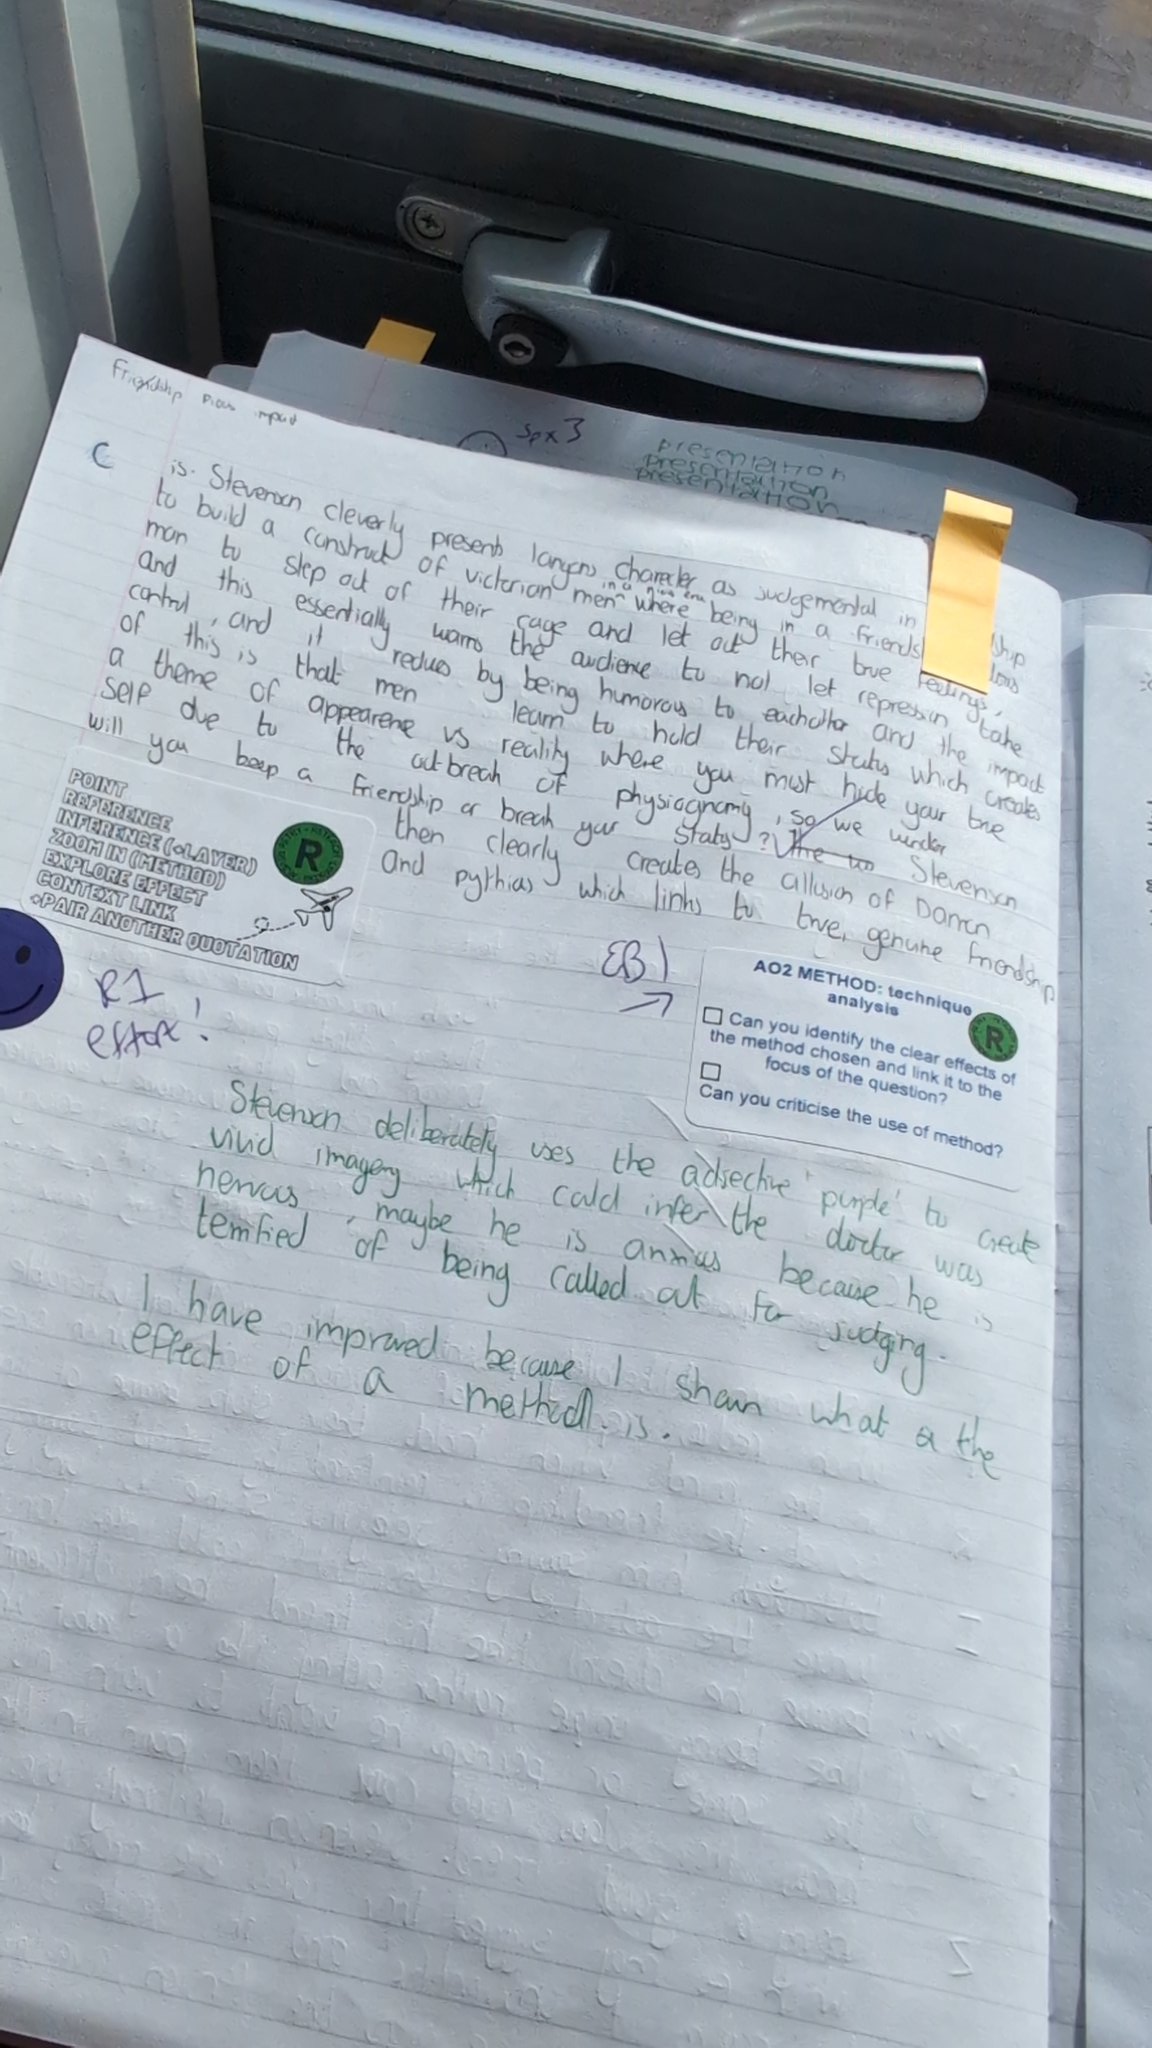 Friendship pious impact
Spx3
presentation
presentation
presentation
C
is. Stevenson cleverly presents lanyons character as judgemental in friendship
to build a construct of victorian men in a pious era where being in a friends
man to step out of their cage and let out their true feelings,
and this essentially warns the audience to not let repression take
control, and it redues by being humorous to eachother and the impact
of this is that men learn to hold their status which creates
a theme of appearene vs reality where you must hide your true
self due to the outbreak of physiognomy, so we wunder
will you beep a friendship or break your status? The un Stevenson
then clearly creates the allusion of Damon
and pythias which links to true, genuine friendship
POINT
REFERENCE
INFERENCE (+LAYER)
ZOOM IN (METHOD)
EXPLORE EFFECT
CONTEXT LINK
+PAIR ANOTHER QUOTATION
R
R1
effort!
EB1
AO2 METHOD: technique
analysis
R
Can you identify the clear effects of
the method chosen and link it to the
focus of the question?
Can you criticise the use of method?
Stevenson deliberately uses the adjective 'purple' to create
vivid imagery which could infer the doctor was
nervous, maybe he is anxious because he is
terrified of being called out for judging.
I have improved because I shown what a the
effect of a method is.